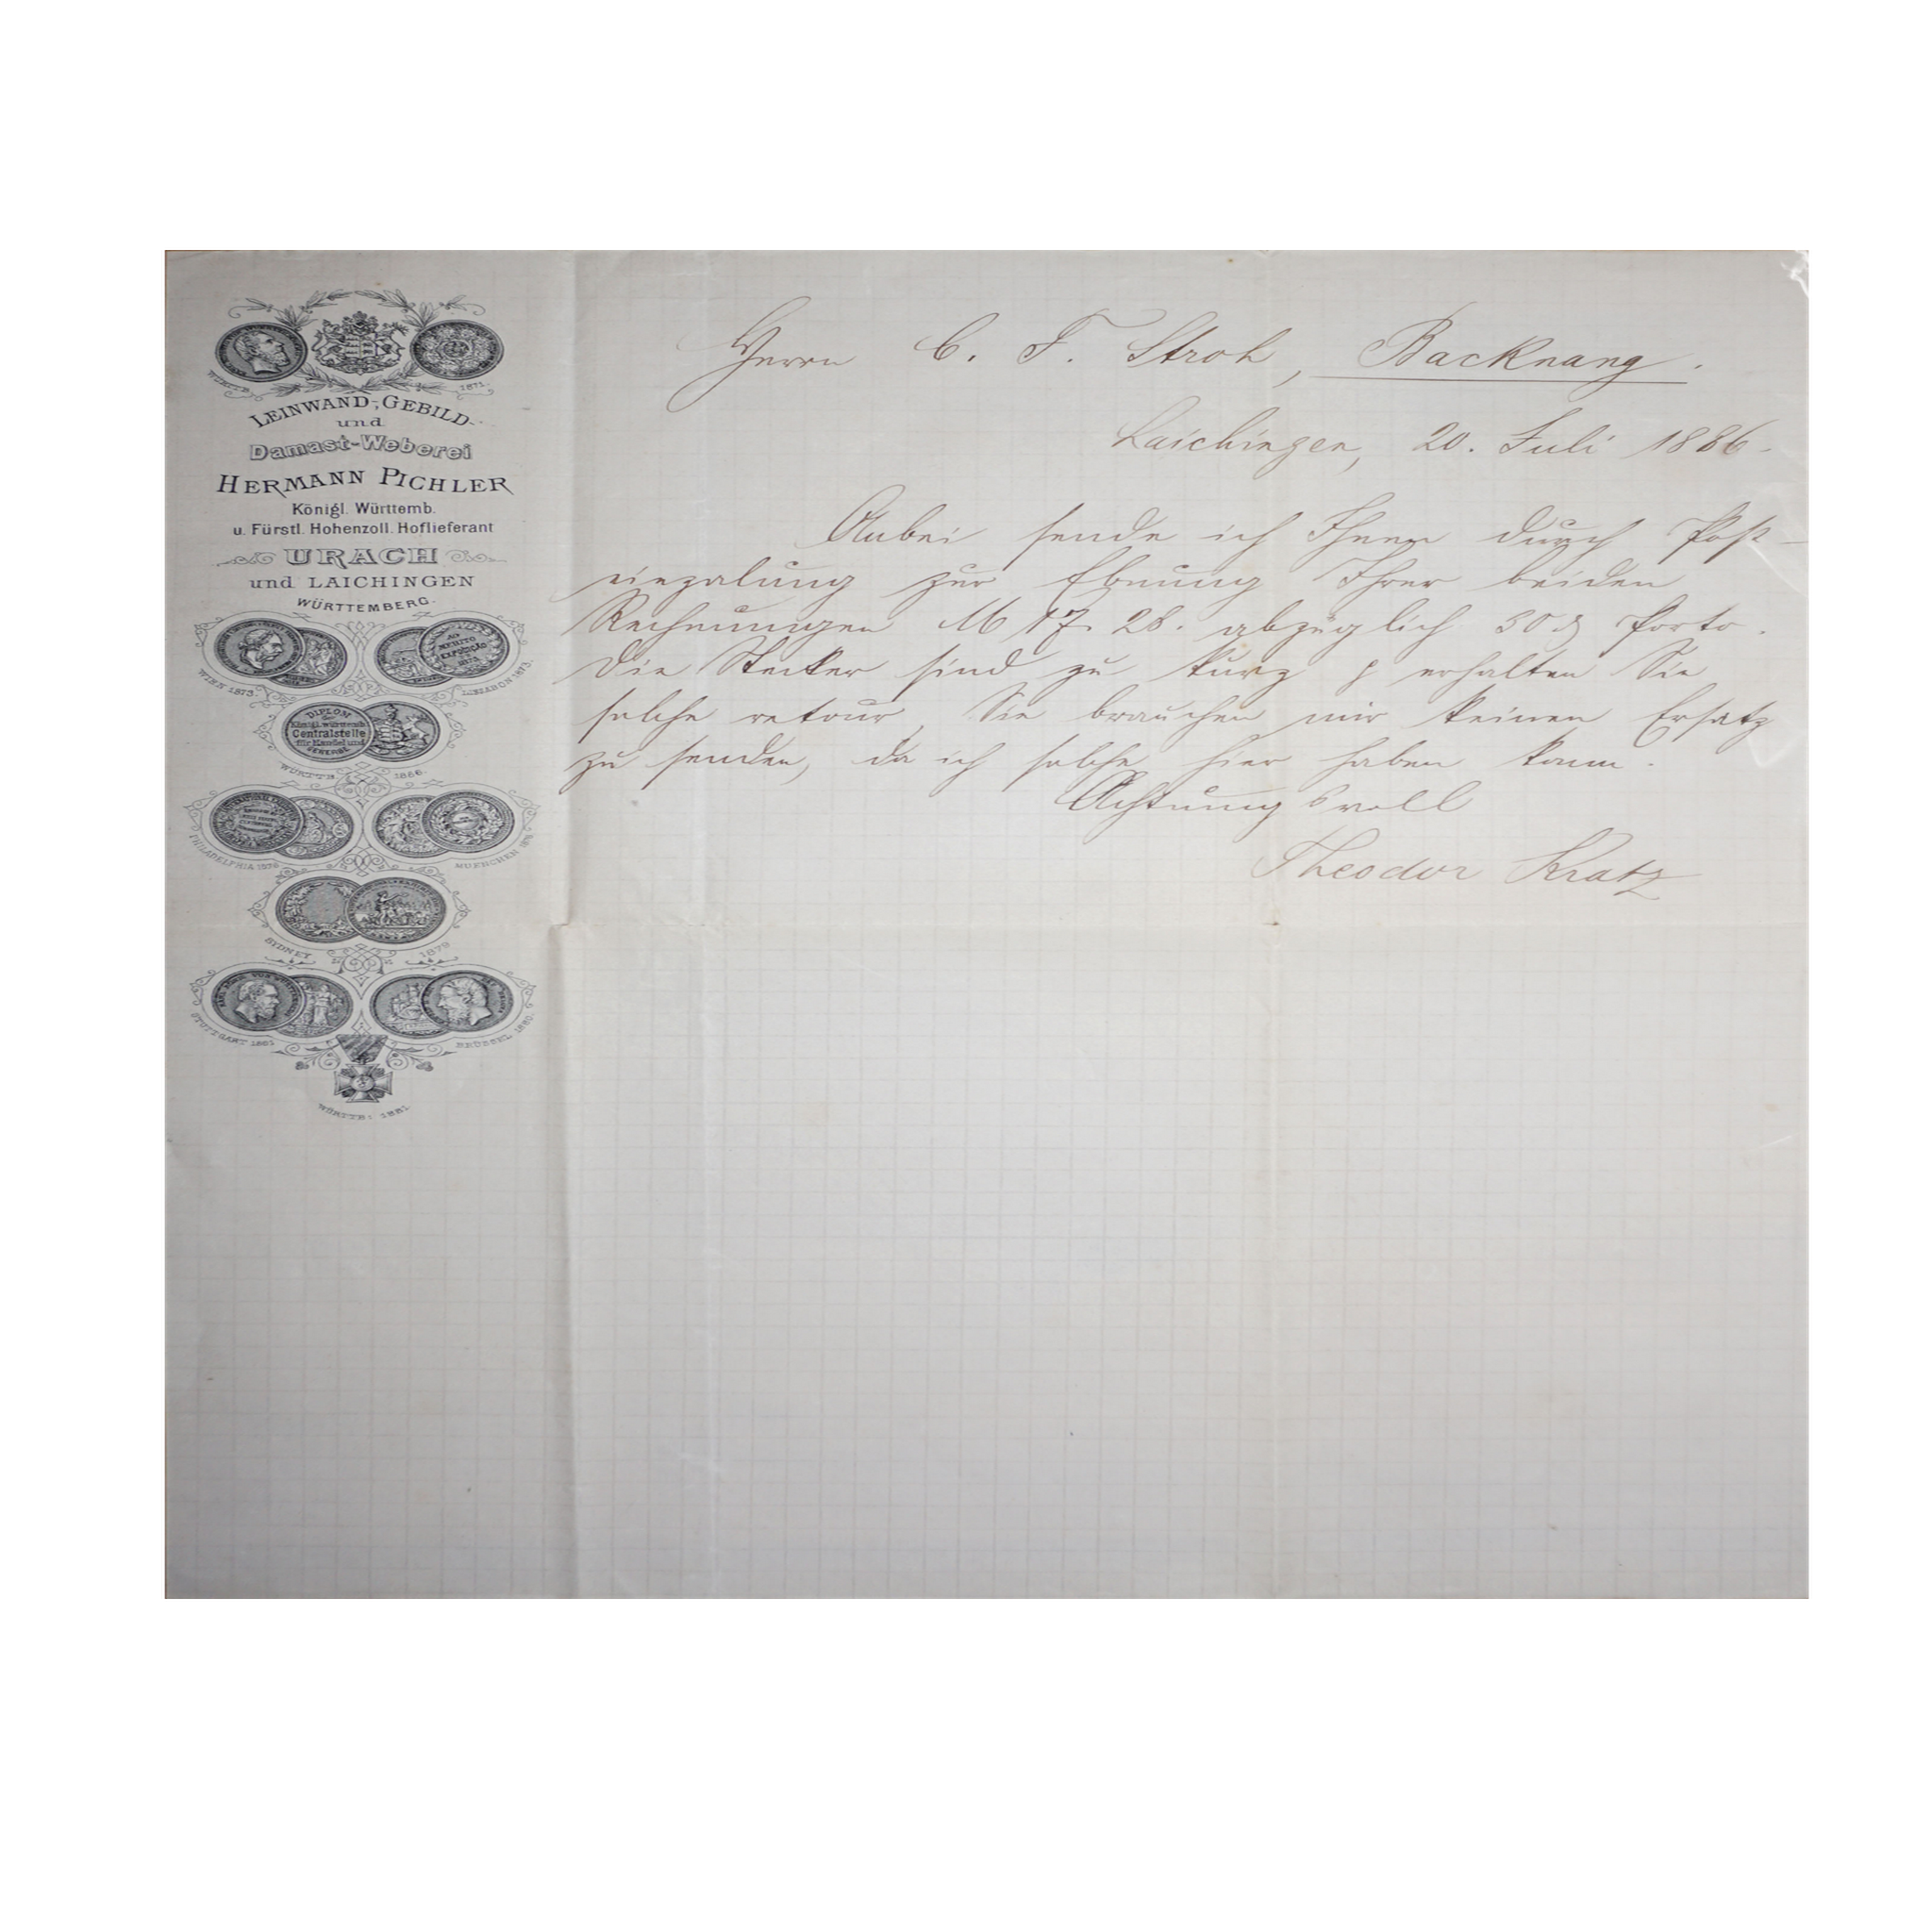 WÜRTTB. 1871.
LEINWAND-, GEBILD-
und
Damast-Weberei
HERMANN PICHLER
Königl. Württemb.
u. Fürstl. Hohenzoll. Hoflieferant
URACH
und LAICHINGEN
WÜRTTEMBERG.
AO MERITO EXPOSIÇÃO
WIEN 1873. LISSABON 1873.
DIPLOM
Königl. württemb.
Centralstelle
für Handel und
GEWERBE
WÜRTTB.
PHILADELPHIA 1876 MUENCHEN 1876
SYDNEY 1879
STUTTGART 1881 BRÜSSEL 1880.
WÜRTTB: 1881.
Herrn C. F. Stroh, Backnang.
Laichingen, 20. Juli 1886.
Anbei sende ich Ihnen durch Post-
einzalung zur Ebnung Ihrer beiden
Rechnungen M 17. 28. abzüglich 30 ₰ Porto.
Die Stecker sind zu kurz & erhalten Sie
solche retour, Sie brauchen mir keinen Ersatz
zu senden, da ich solche hier haben kann.
Achtungsvoll
Theodor Kratz